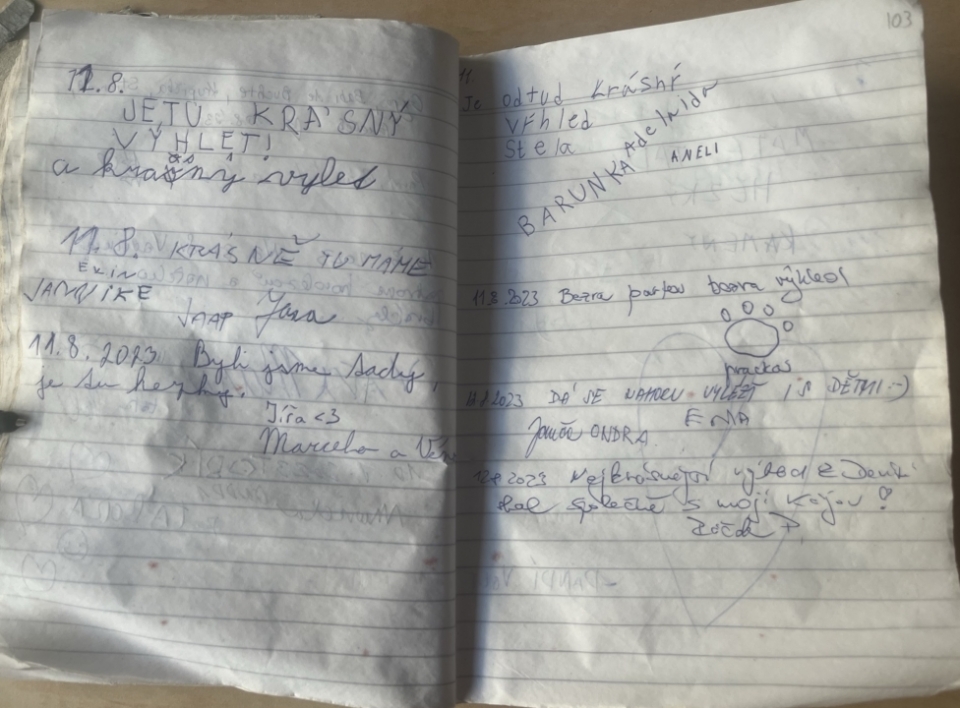 11.8.
JE TU KRÁSNÝ
VÝHLET!
a krásný výlet
11.8. KRÁSNĚ TU MÁME
EXIN
JANNIKE
JAAP Jara
11.8.2023 Byli jsme tady,
je tu hezky.
Jířa <3
Marcela a
103
11.
Je odtud krásní
vřhled
Stela
Adelnida
BARUNKA
ANELI
11.8.2023 Bezva parta bezva výhled
prackas
11.8.2023 DÁ SE NAHORU VYLÉZT I S DĚTMI :-)
EMA
ONDRA
12.8.2023 Nejkrásnější výhled z
skal společně s mojí Kájou